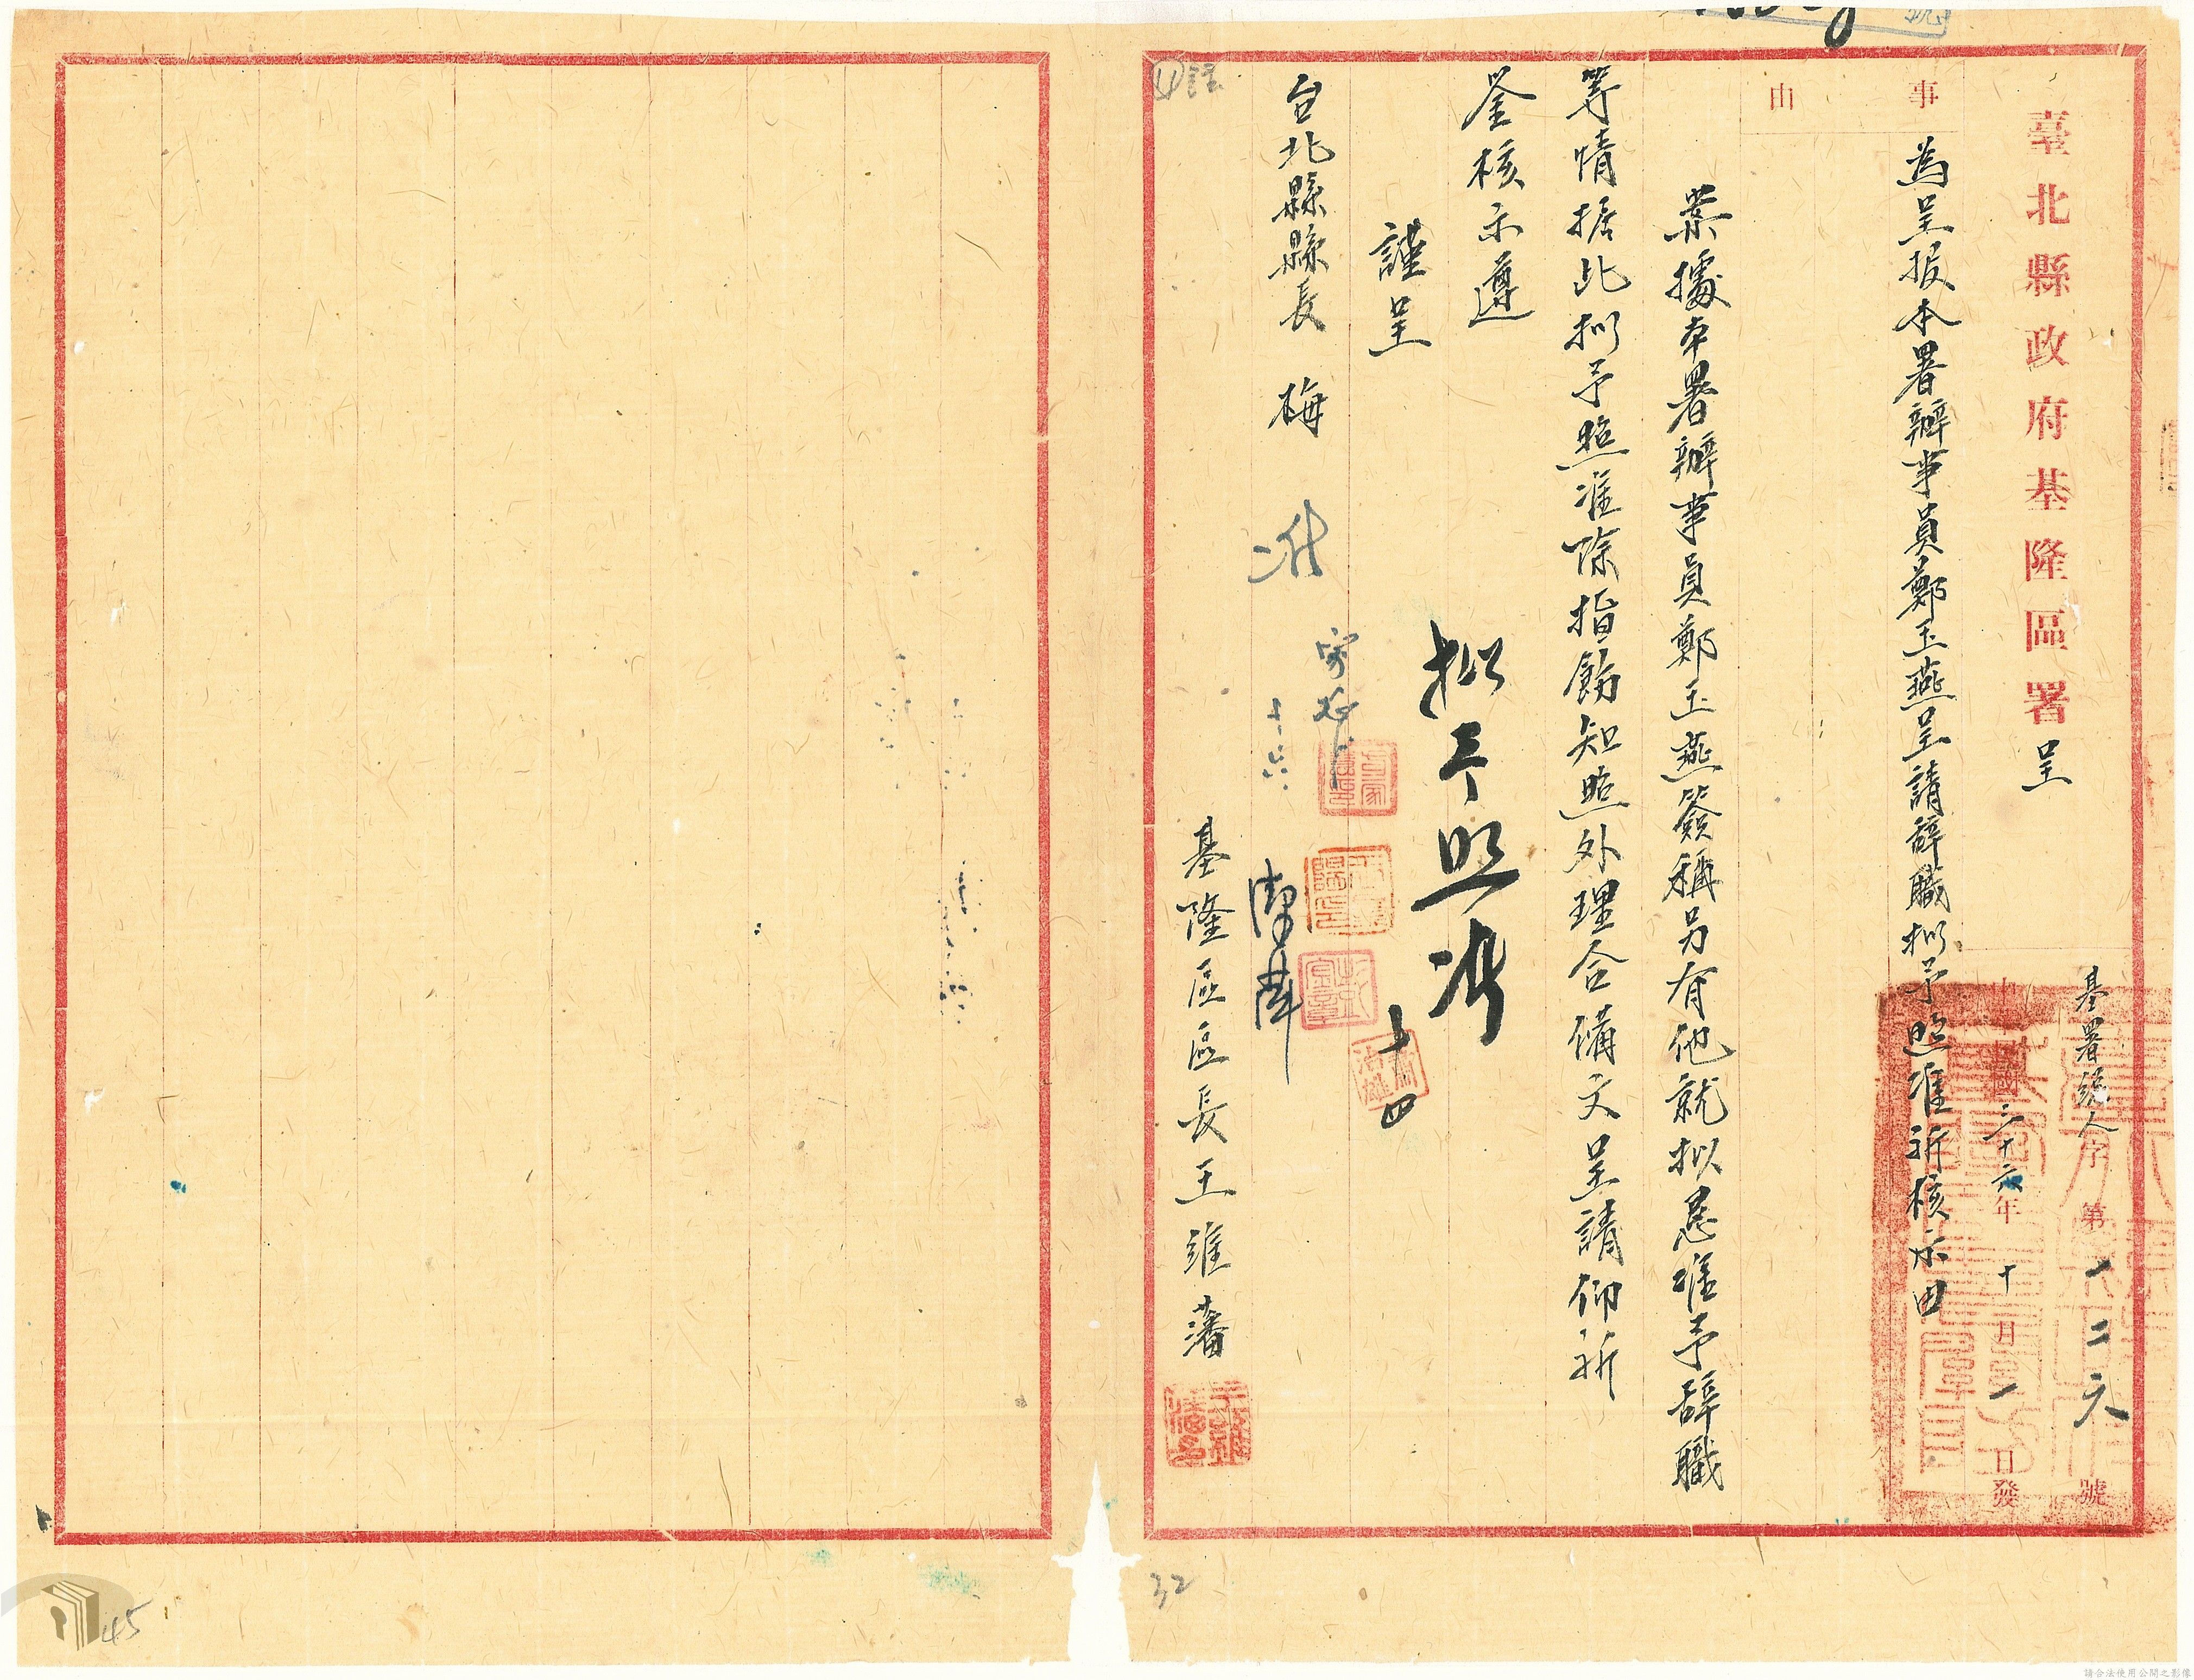 臺北縣政府基隆區署 呈
基署總人字第一二六號
中華民國三十六年十月一日發
事由
為呈报本署辦事員鄭玉燕呈請辞職拟予照准祈核示由
業據本署辦事員鄭玉燕簽稱另有他就拟懇准予辞職
等情据此拟予照准除指飭知照外理合備文呈請仰祈
鉴核示遵
謹呈
台北縣縣長 梅
拟予照准
十 四
准
十 六
基隆區區長王維藩
④註
32
45
請合法使用公開之影像